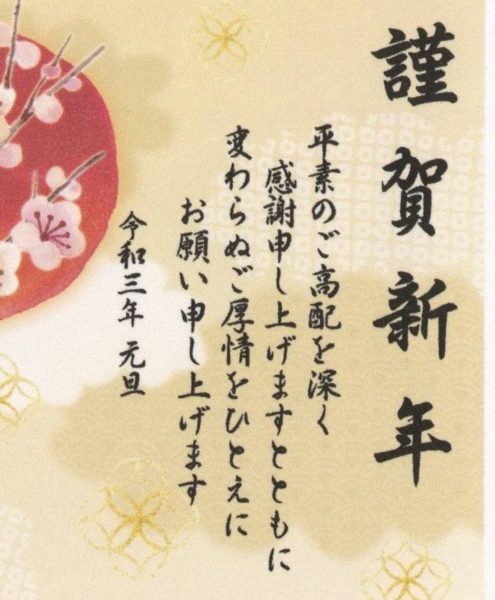 謹賀新年
平素のご高配を深く
感謝申し上げますとともに
変わらぬご厚情をひとえに
お願い申し上げます
令和三年 元旦